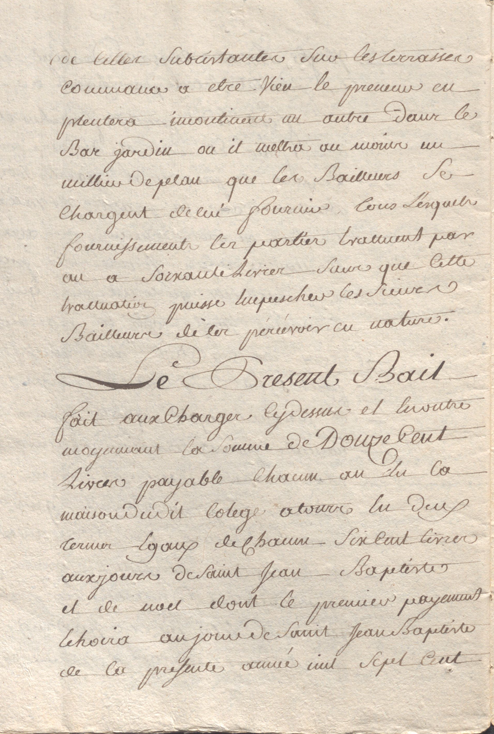 de celles subsistantes sur les terrasses
commence a etre vieu le preneur en
plentera incontinent un autre dans le
Bas jardin ou il mettra au moins un
millier de plan que les Bailleurs se
chargent de lui fournir tous lesquels
fournissements les parties evaluent par
an a soixante livres sans que cette
evaluation puisse empescher les sieurs
Bailleurs de les percevoir en nature.
Le Present Bail
fait aux charges cy dessus et en outre
moyennant la somme de Douze Cent
livres payable chacun an en la
maison dudit Colege a tours en deux
termes egaux de chacun six cent livres
aux jours de saint Jean Baptiste
et de noel dont le premier payement
echoira au jour de saint Jean Baptiste
de la presente année mil sept cent